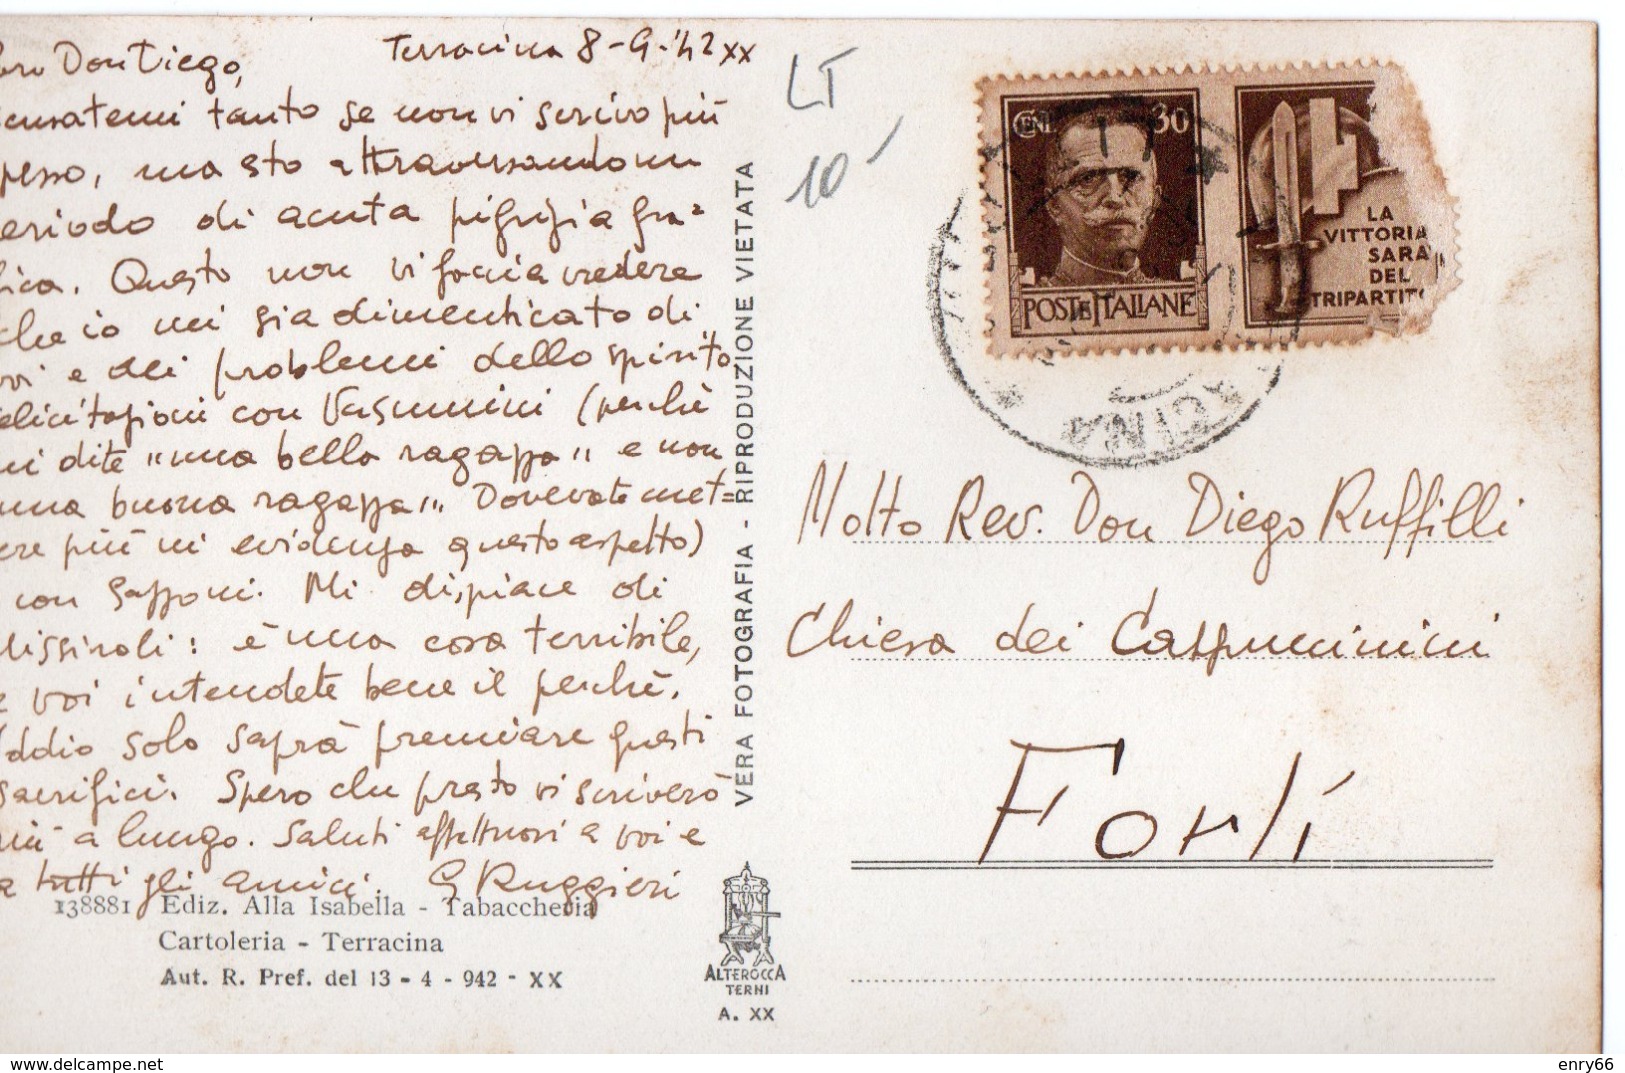 Terracina 8-9-'42 XX
Caro Don Diego,
scusatemi tanto se non vi scrivo più
spesso, ma sto attraversando un
periodo di acuta pigrizia gra=
fica. Questo non vi faccia vedere
che io mi sia dimenticato di
voi e dei problemi dello spirito.
Felicitazioni con Vasumini (perchè
mi dite "una bella ragazza" e non
"una buona ragazza". Dovevate met=
tere più in evidenza questo aspetto)
con Zapponi. Mi dispiace di
Missiroli: è una cosa terribile,
e voi intendete bene il perchè.
Iddio solo saprà premiare questi
sacrifici. Spero che presto vi scriverò
più a lungo. Saluti affettuosi a voi e
a tutti gli amici. G Ruggieri
138881 Ediz. Alla Isabella - Tabaccheria
Cartoleria - Terracina
Aut. R. Pref. del 13 - 4 - 942 - XX
VERA FOTOGRAFIA - RIPRODUZIONE VIETATA
ALTEROCCA
TERNI
A. XX
LT
10
CENT. 30
POSTE ITALIANE
LA
VITTORIA
SARÀ
DEL
TRIPARTITO
Molto Rev. Don Diego Ruffilli
Chiesa dei Cappuccinini
Forlì
enry66